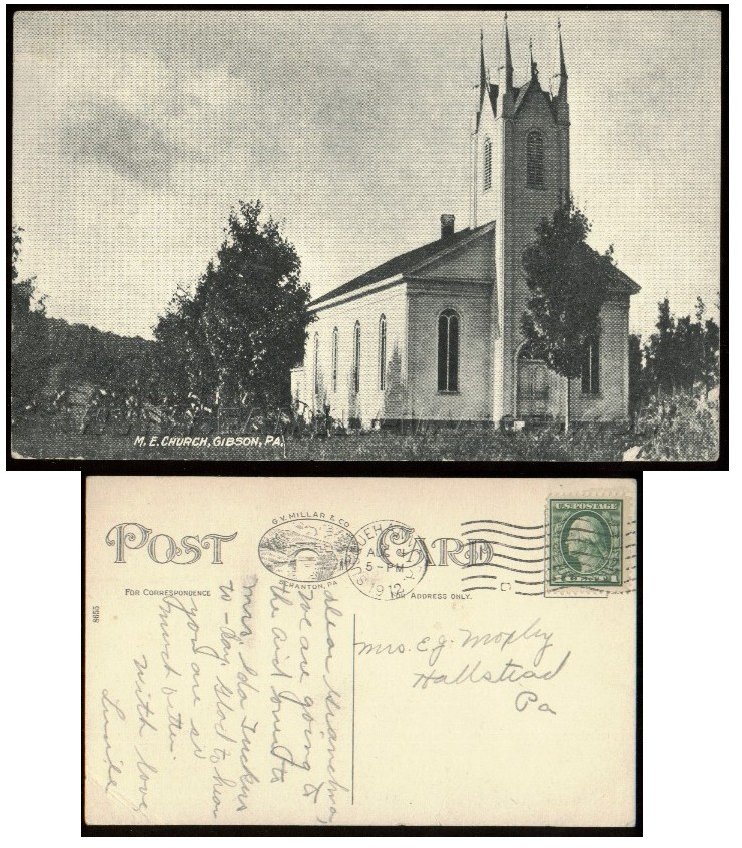 M. E. CHURCH, GIBSON, PA.
POST CARD
G. V. MILLAR & CO.
SCRANTON, PA.
SUSQUEHANNA
AUG
5-PM
1912
U.S. POSTAGE
1 CENT 1
FOR CORRESPONDENCE
FOR ADDRESS ONLY.
8655
Dear Grandma,
we are going to
the aid
Mrs. Ida Tuckers
to-day. Glad to hear
you are so
much better.
with love,
Mrs. E. J.
Hallstead
Pa